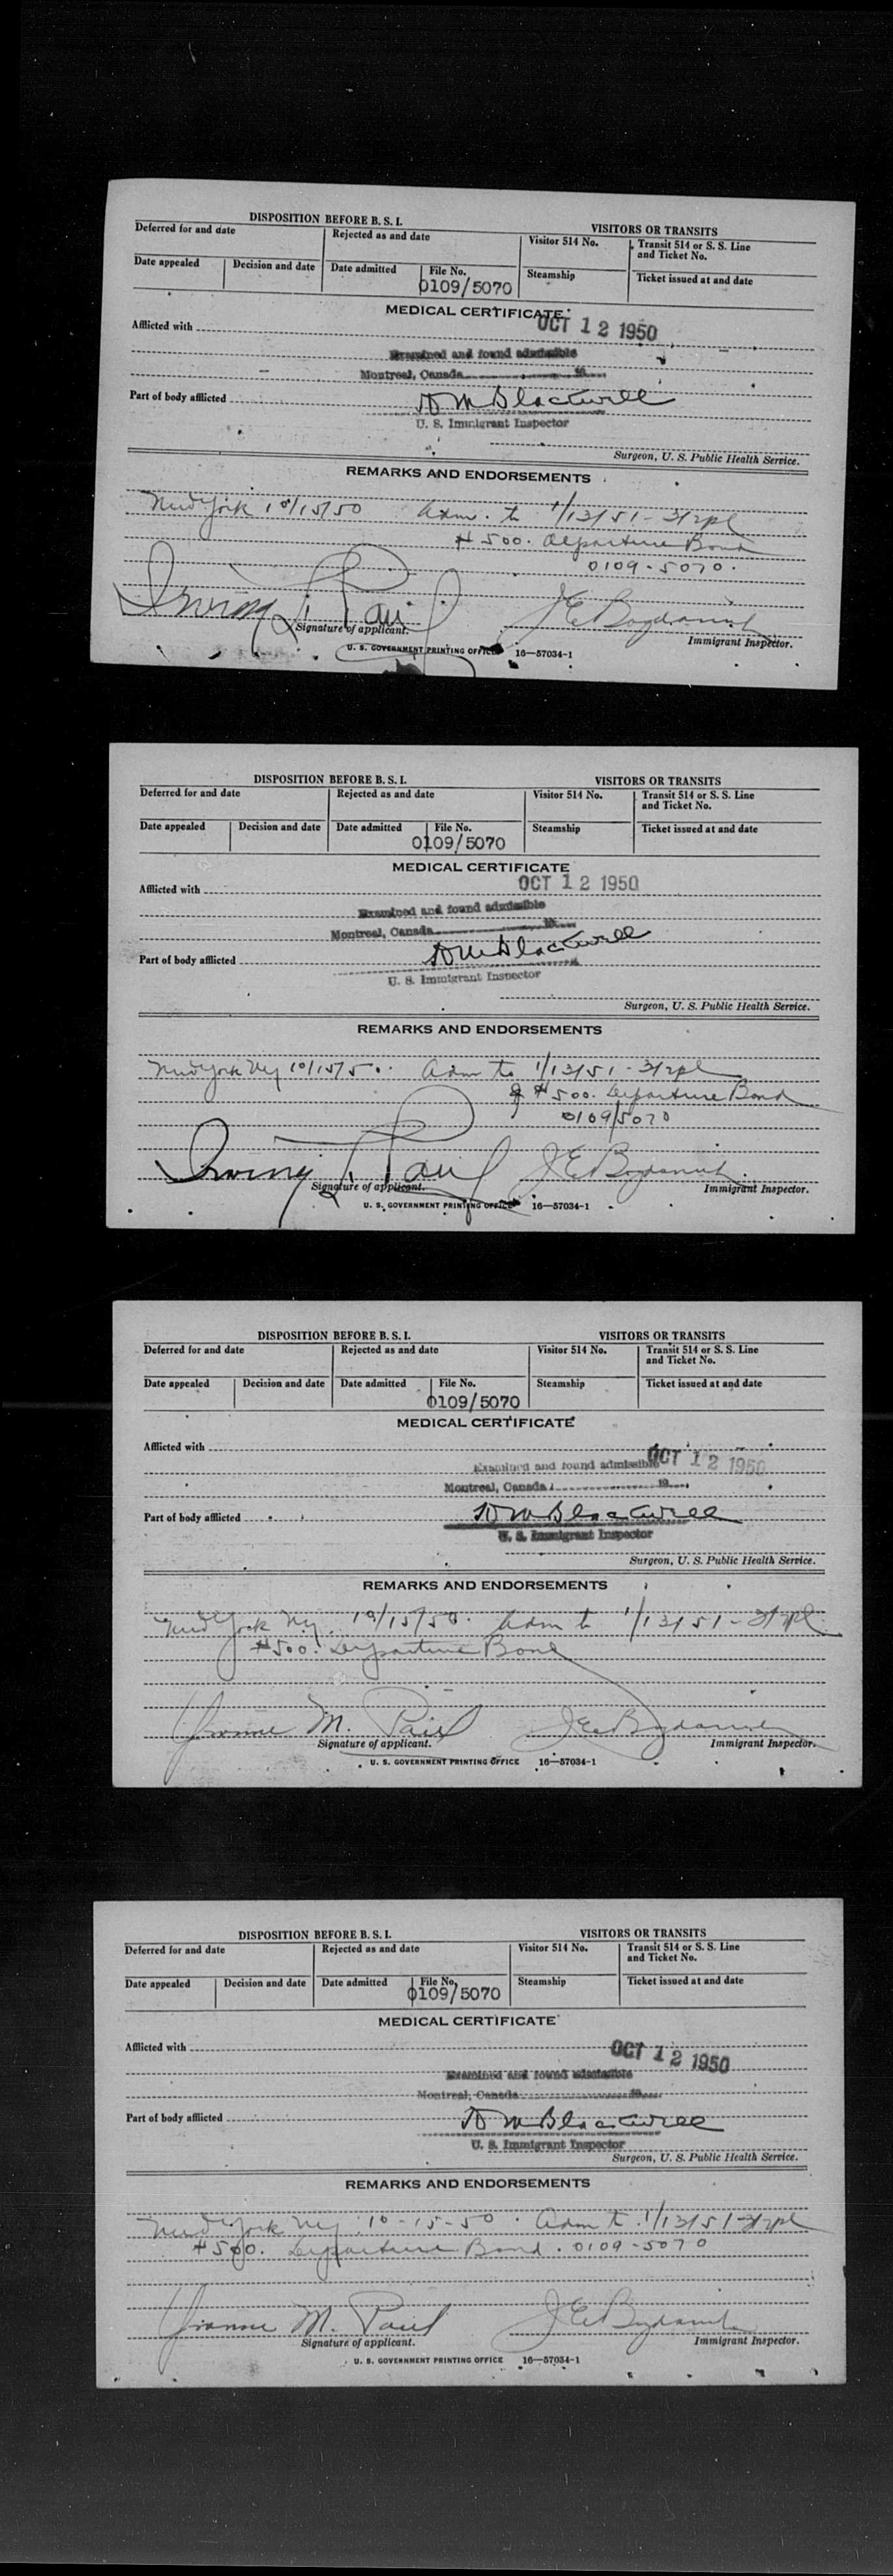 DISPOSITION BEFORE B. S. I.
VISITORS OR TRANSITS
Deferred for and date
Rejected as and date
Visitor 514 No.
Transit 514 or S. S. Line and Ticket No.
Date appealed
Decision and date
Date admitted
File No.
0109/5070
Steamship
Ticket issued at and date
MEDICAL CERTIFICATE
OCT 12 1950
Afflicted with
Examined and found admissible
Montreal, Canada 19
Part of body afflicted
U. S. Immigrant Inspector
Surgeon, U. S. Public Health Service.
REMARKS AND ENDORSEMENTS
New York 10/15/50 Adm. to 1/13/51 - 3(2)
$500. Departure Bond
0109-5070.
Irving Paul
J E
Signature of applicant.
Immigrant Inspector.
U. S. GOVERNMENT PRINTING OFFICE 16—57034-1
DISPOSITION BEFORE B. S. I.
VISITORS OR TRANSITS
Deferred for and date
Rejected as and date
Visitor 514 No.
Transit 514 or S. S. Line and Ticket No.
Date appealed
Decision and date
Date admitted
File No.
0109/5070
Steamship
Ticket issued at and date
MEDICAL CERTIFICATE
OCT 12 1950
Afflicted with
Examined and found admissible
Montreal, Canada 19
Part of body afflicted
U. S. Immigrant Inspector
Surgeon, U. S. Public Health Service.
REMARKS AND ENDORSEMENTS
New York NY 10/15/50. Adm to 1/13/51 - 3(2)
& $500. Departure Bond
0109/5070
Irving Paul
J E
Signature of applicant.
Immigrant Inspector.
U. S. GOVERNMENT PRINTING OFFICE 16—57034-1
DISPOSITION BEFORE B. S. I.
VISITORS OR TRANSITS
Deferred for and date
Rejected as and date
Visitor 514 No.
Transit 514 or S. S. Line and Ticket No.
Date appealed
Decision and date
Date admitted
File No.
0109/5070
Steamship
Ticket issued at and date
MEDICAL CERTIFICATE
Afflicted with
OCT 12 1950
Examined and found admissible
Montreal, Canada 19
Part of body afflicted
U. S. Immigrant Inspector
Surgeon, U. S. Public Health Service.
REMARKS AND ENDORSEMENTS
New York N.Y. 10/15/50. Adm to 1/13/51 - 3(2)
$500. Departure Bond
Yvonne M. Paul
J E
Signature of applicant.
Immigrant Inspector.
U. S. GOVERNMENT PRINTING OFFICE 16—57034-1
DISPOSITION BEFORE B. S. I.
VISITORS OR TRANSITS
Deferred for and date
Rejected as and date
Visitor 514 No.
Transit 514 or S. S. Line and Ticket No.
Date appealed
Decision and date
Date admitted
File No.
0109/5070
Steamship
Ticket issued at and date
MEDICAL CERTIFICATE
Afflicted with
OCT 12 1950
Examined and found admissible
Montreal, Canada 19
Part of body afflicted
U. S. Immigrant Inspector
Surgeon, U. S. Public Health Service.
REMARKS AND ENDORSEMENTS
New York NY 10-15-50. Adm to 1/13/51 - 3(2)
$500. Departure Bond. 0109-5070
Yvonne M. Paul
J E
Signature of applicant.
Immigrant Inspector.
U. S. GOVERNMENT PRINTING OFFICE 16—57034-1